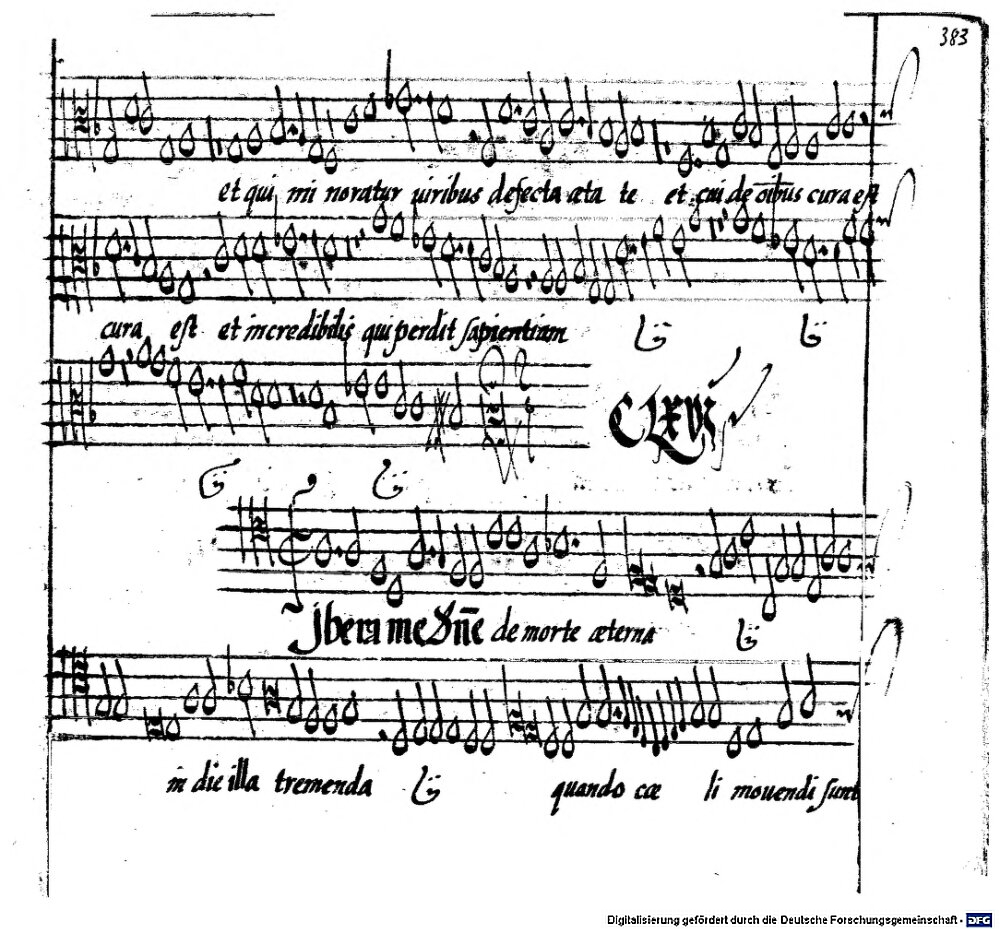 383
et qui mi noratur uiribus defecta æta te et cui de oībus cura est
cura est et incredibilis qui perdit sapientiam ij ij
CLXVI
ij ij
Libera me Dñe de morte æterna ij
in die illa tremenda ij quando cæ li mouendi sunt
Digitalisierung gefördert durch die Deutsche Forschungsgemeinschaft - DFG